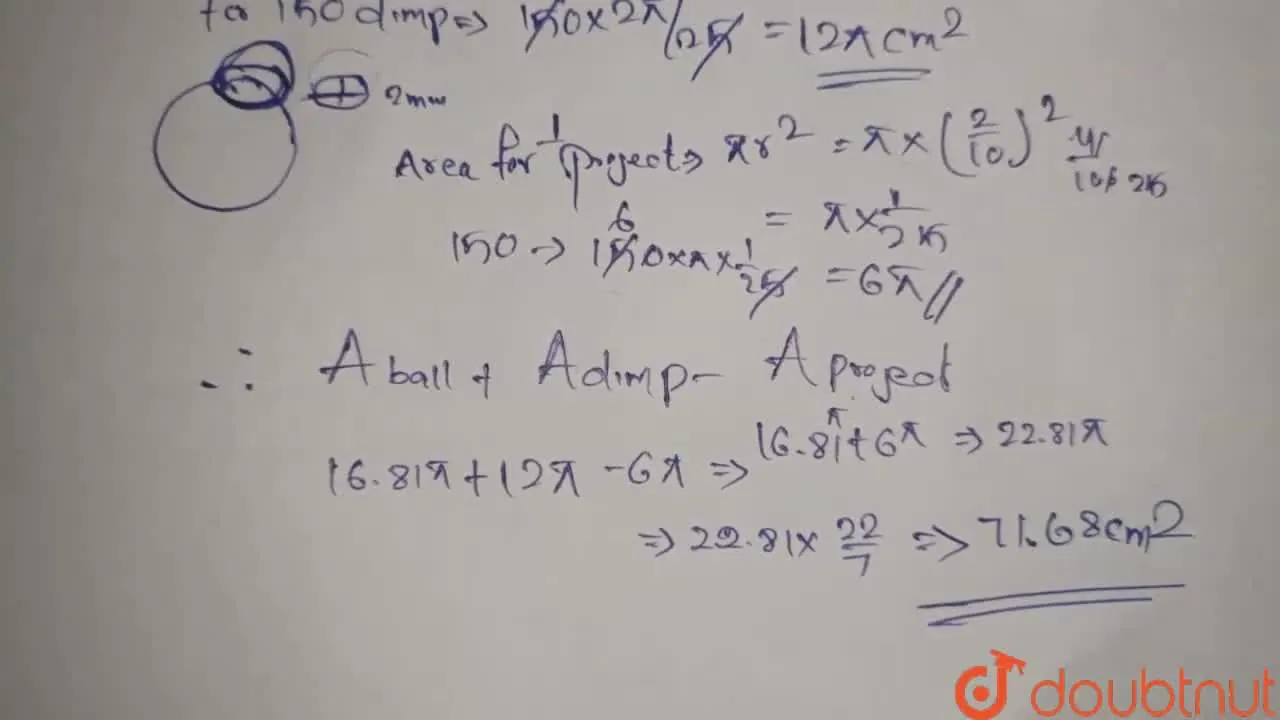 for 150 dimp ⇒ 150 × 2π/25 = 12π cm²
2mm
Area for 1 project ⇒ πr² = π × (2/10)² 4/100 25
= π × 1/25
150 → 150 × π × 1/25 6 = 6π //
∴ A ball + A dimp - A project
16.81π + 12π - 6π ⇒ 16.81π + 6π ⇒ 22.81π
⇒ 22.81 × 22/7 ⇒ 71.68 cm²
doubtnut